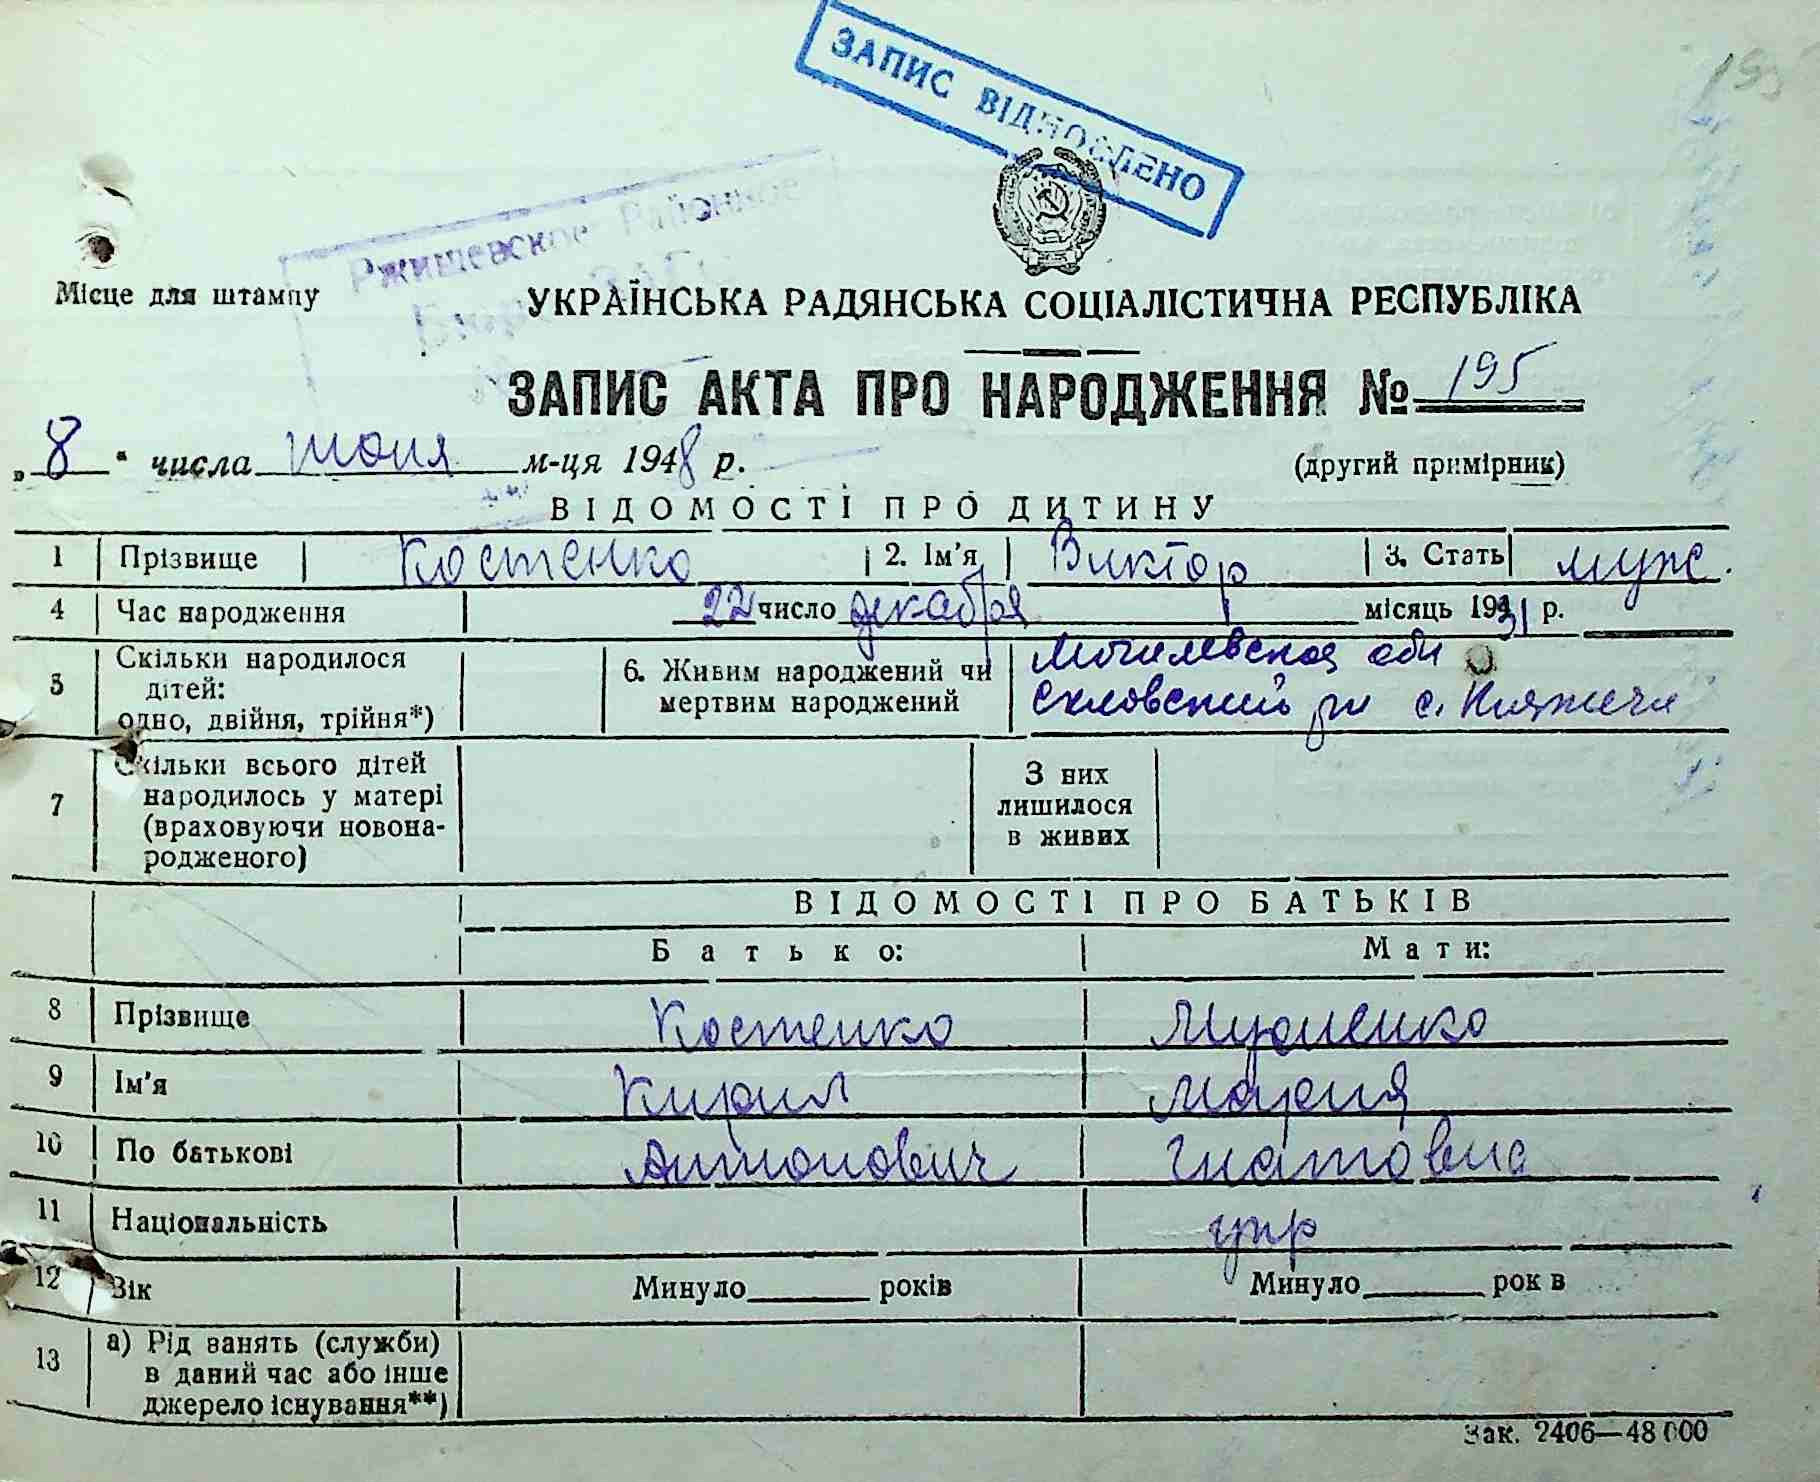 195
ЗАПИС ВІДНОВЛЕНО
Ржищевское Районное
Бюро ЗАГС
Місце для штампу
УКРАЇНСЬКА РАДЯНСЬКА СОЦІАЛІСТИЧНА РЕСПУБЛІКА
ЗАПИС АКТА ПРО НАРОДЖЕННЯ № 195
„8“ числа июня м-ця 1948 р.
(другий примірник)
ВІДОМОСТІ ПРО ДИТИНУ
1 Прізвище Костенко 2. Ім'я Виктор 3. Стать муж.
4 Час народження 22 число декабря місяць 1931 р.
5 Скільки народилося дітей: одно, двійня, трійня*)
6. Живим народжений чи мертвим народжений
Могилевская обл
с. Княжичи
7 Скільки всього дітей народилось у матері (враховуючи новонародженого)
З них лишилося в живих
ВІДОМОСТІ ПРО БАТЬКІВ
Батько: Мати:
8 Прізвище Костенко
9 Ім'я Кирил Мария
10 По батькові Антонович Гнатовна
11 Національність укр
12 Вік Минуло років Минуло рок в
13 а) Рід занять (служби) в даний час або інше джерело існування**)
Зак. 2406—48000